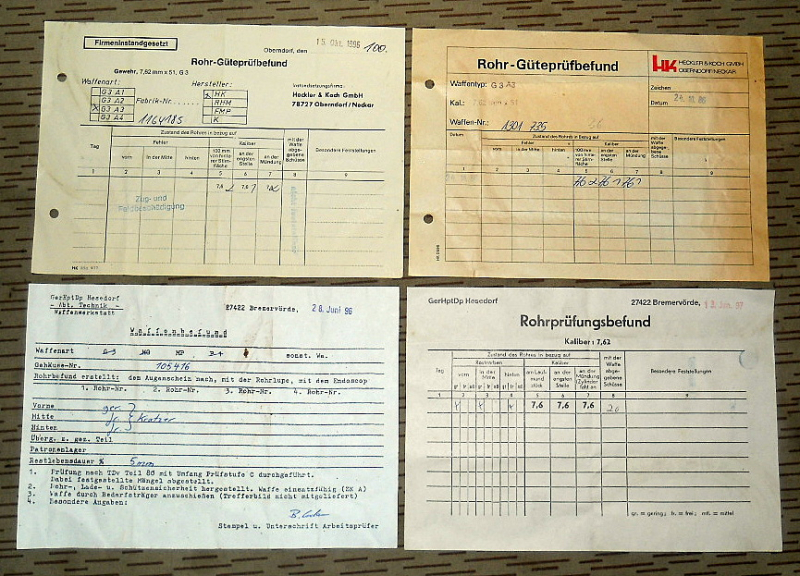 Firmeninstandgesetzt
Oberndorf, den 15. Okt. 1996
100.
Rohr-Güteprüfbefund
Gewehr, 7,62 mm x 51, G 3
Waffenart: Hersteller:
G 3 A1
G 3 A2
X G 3 A3
G 3 A4
Fabrik-Nr.
1164185
X HK
RHM
FMP
K
Heckler & Koch GmbH
78727 Oberndorf/Neckar
Zustand des Rohres in bezug auf
Tag
Fehler
Kaliber
vorn in der Mitte hinten
100 mm von hinterer Stirnfläche
an der engsten Stelle
an der Mündung
mit der Waffe abgegebene Schüsse
Besondere Feststellungen
1 2 3 4 5 6 7 8 9
7,6 7,6
Zug- und
Feldbeschädigung
Rohr-Güteprüfbefund
HK HECKLER & KOCH GMBH
OBERNDORF/NECKAR
Waffentyp: G 3 A3
Zeichen
Kal.: 7,62 mm x 51
Datum
Waffen-Nr.: 1301 735
Datum
Zustand des Rohres in bezug auf
Fehler
Kaliber
vorn in der Mitte hinten
100 mm von hinterer Stirnfläche
an der engsten Stelle
an der Mündung
mit der Waffe abgegebene Schüsse
Besondere Feststellungen
1 2 3 4 5 6 7 8 9
GerHptDp Hesedorf
- Abt. Technik -
Waffenwerkstatt
27422 Bremervörde, 28. Juni 96
Waffenbefund
Waffenart G3 MG MP P-1 sonst. Wa.
Gehäuse-Nr. 105416
Rohrbefund erstellt: dem Augenschein nach, mit der Rohrlupe, mit dem Endoscop
1. Rohr-Nr. 2. Rohr-Nr. 3. Rohr-Nr. 4. Rohr-Nr.
Vorne ger.
Mitte gr. } Kratzer
Hinten gr.
Überg. z. gez. Teil
Patronenlager
Restlebensdauer % 5mm
1. Prüfung nach TDv Teil 86 mit Umfang Prüfstufe C durchgeführt.
Dabei festgestellte Mängel abgestellt.
2. Rohr-, Lade- u. Schützensicherheit hergestellt. Waffe einsatzfähig (ZK A)
3. Waffe durch Bedarfsträger anzuschießen (Trefferbild nicht mitgeliefert)
4. Besondere Angaben:
Stempel u. Unterschrift Arbeitsprüfer
GerHptDp Hesedorf
27422 Bremervörde, Jun. 97
Rohrprüfungsbefund
Kaliber: 7,62
Zustand des Rohres in bezug auf
Tag
Kaliber
vorn in der Mitte hinten
an der engsten Stelle
an der Mündung
mit der Waffe abgegebene Schüsse
Besondere Feststellungen
1 2 3 4 5 6 7 8 9
7,6 7,6 7,6 20
gr. = gering; fr. = frei; mtl. = mittel